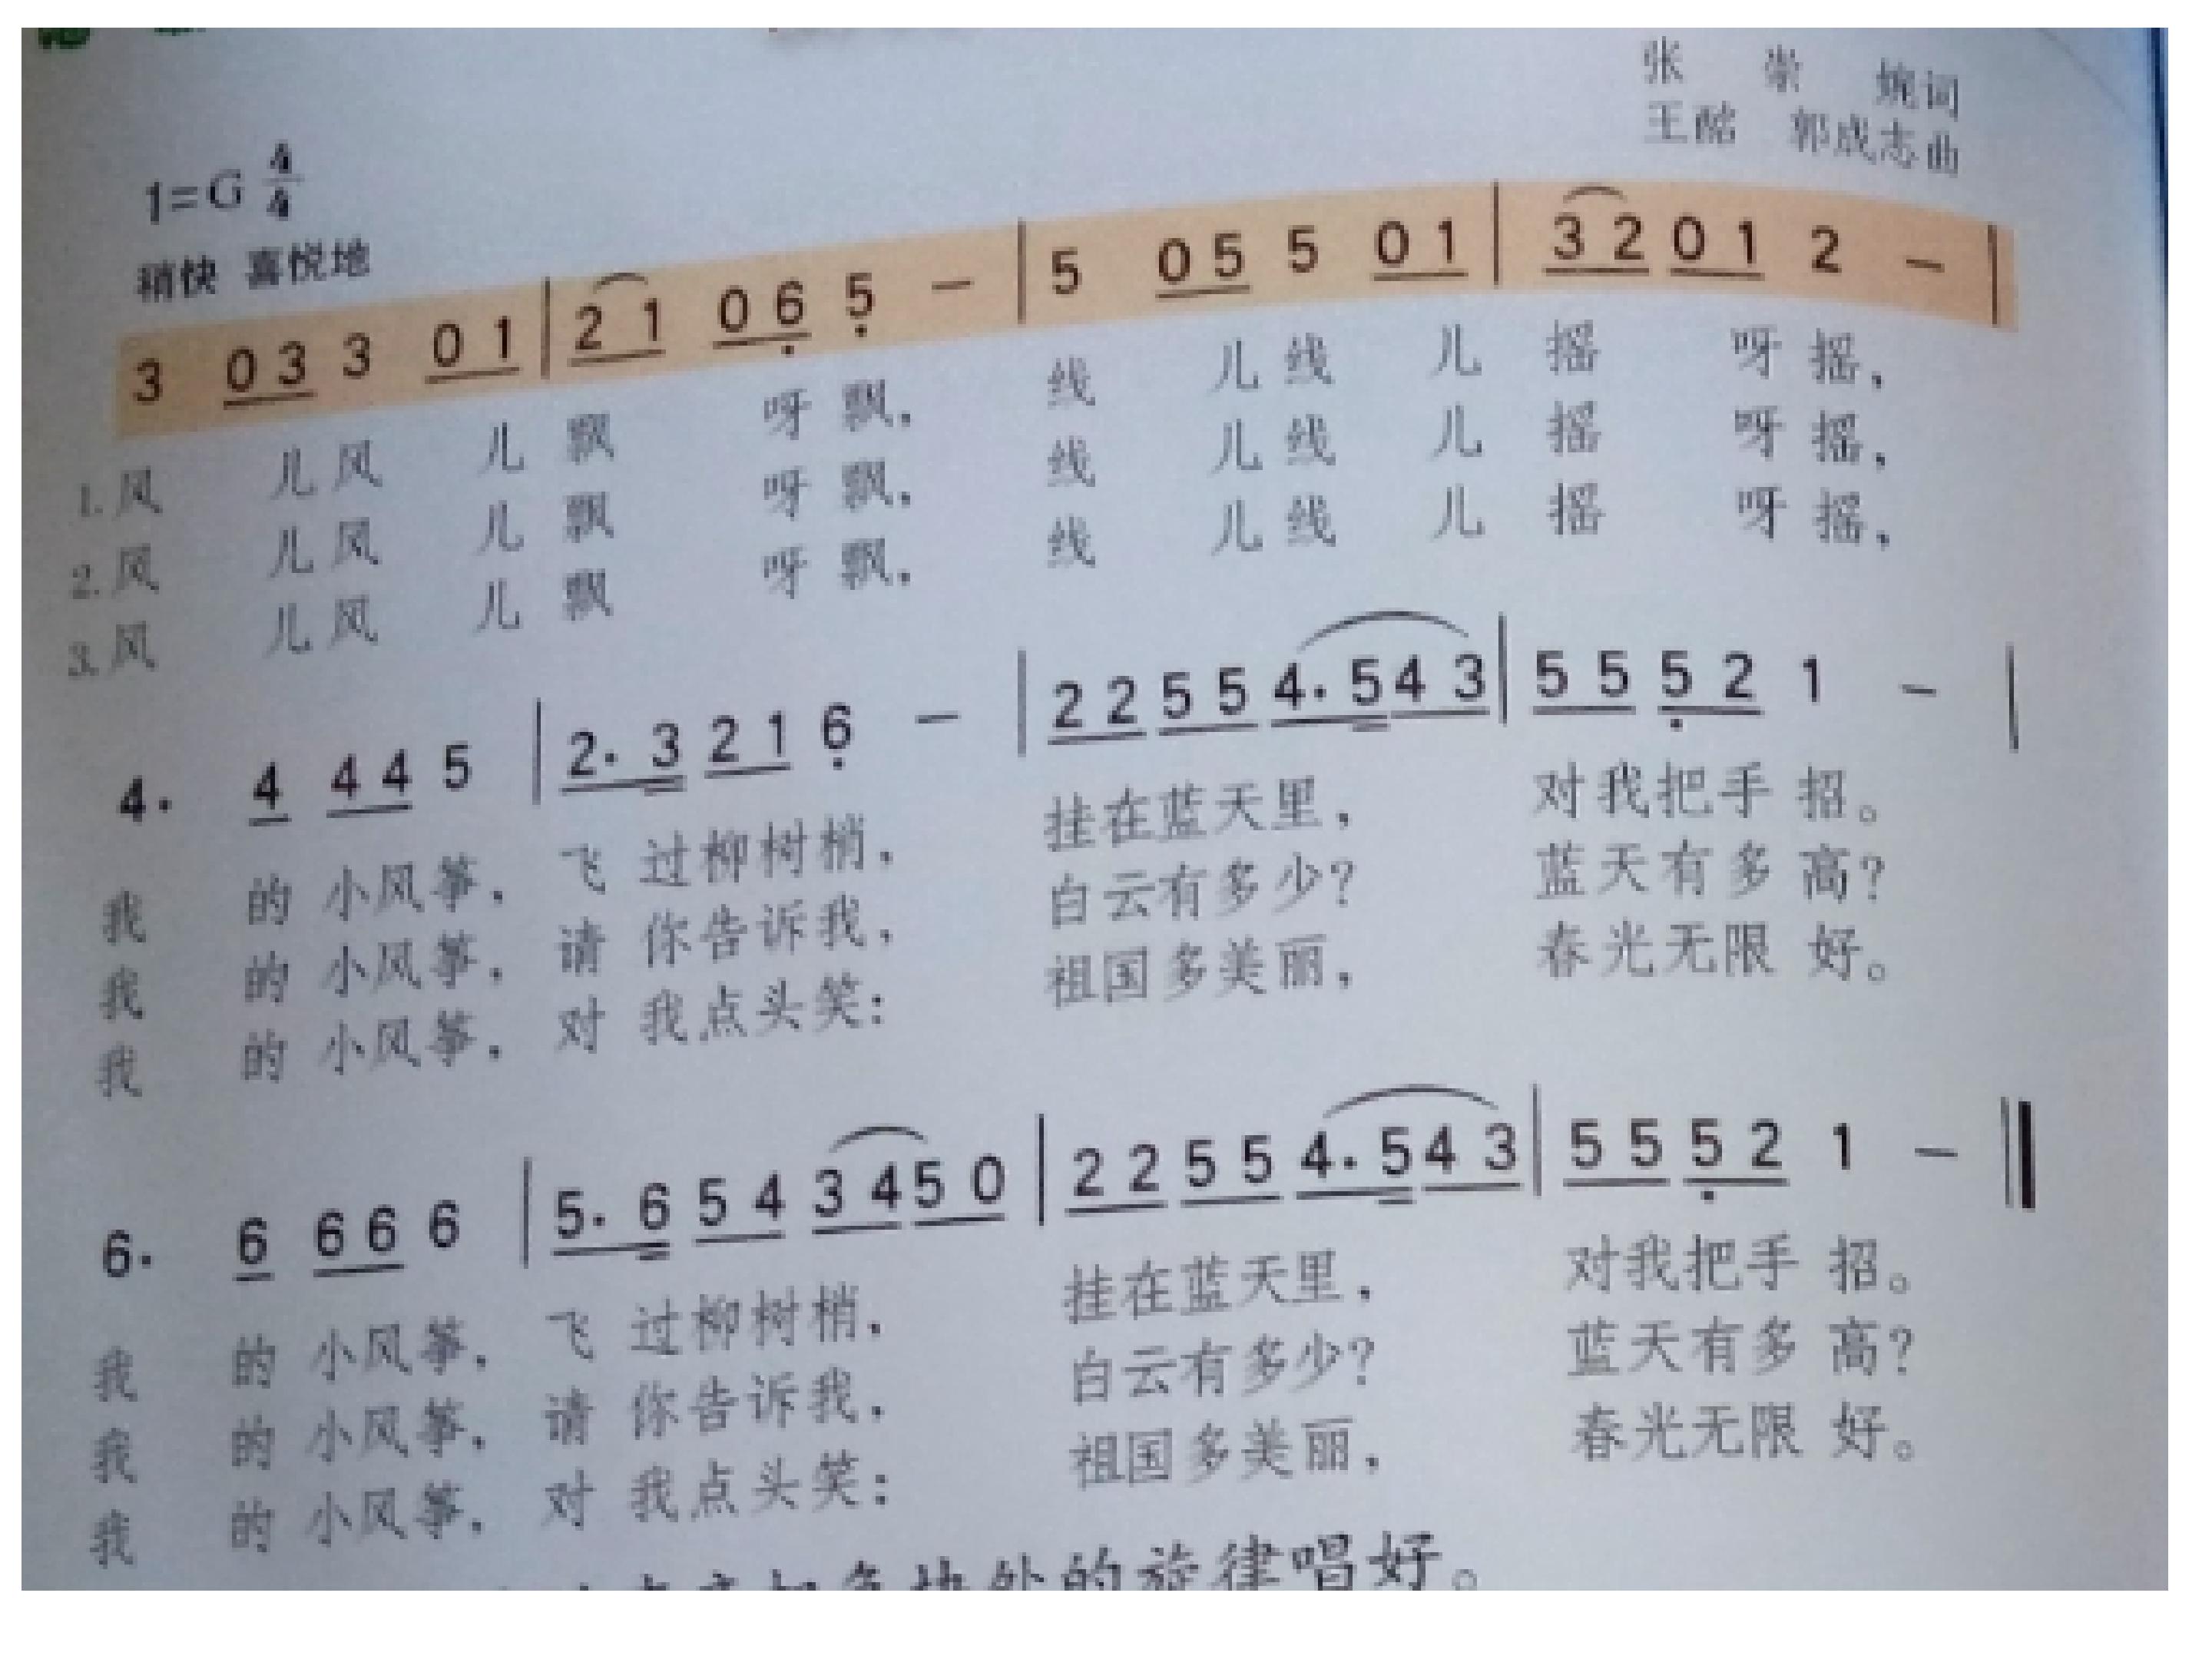 张 崇 婉词
王酩 郭成志曲
1=G 4/4
稍快 喜悦地
3 0 3 3 0 1 | 2 1 0 6 5 – | 5 0 5 5 0 1 | 3 2 0 1 2 – |
1.风 儿风 儿 飘 呀 飘, 线 儿线 儿 摇 呀 摇,
2.风 儿风 儿 飘 呀 飘, 线 儿线 儿 摇 呀 摇,
3.风 儿风 儿 飘 呀 飘, 线 儿线 儿 摇 呀 摇,
4· 4 4 4 5 | 2· 3 2 1 6 – | 2 2 5 5 4· 5 4 3 | 5 5 5 2 1 – |
我 的 小风筝, 飞 过柳树梢, 挂在蓝天里, 对我把手 招。
我 的 小风筝, 请 你告诉我, 白云有多少? 蓝天有多 高?
我 的 小风筝, 对 我点头笑: 祖国多美丽, 春光无限 好。
6· 6 6 6 6 | 5· 6 5 4 3 4 5 0 | 2 2 5 5 4· 5 4 3 | 5 5 5 2 1 – ‖
我 的 小风筝, 飞 过柳树梢, 挂在蓝天里, 对我把手 招。
我 的 小风筝, 请 你告诉我, 白云有多少? 蓝天有多 高?
我 的 小风筝, 对 我点头笑: 祖国多美丽, 春光无限 好。
处的旋律唱好。